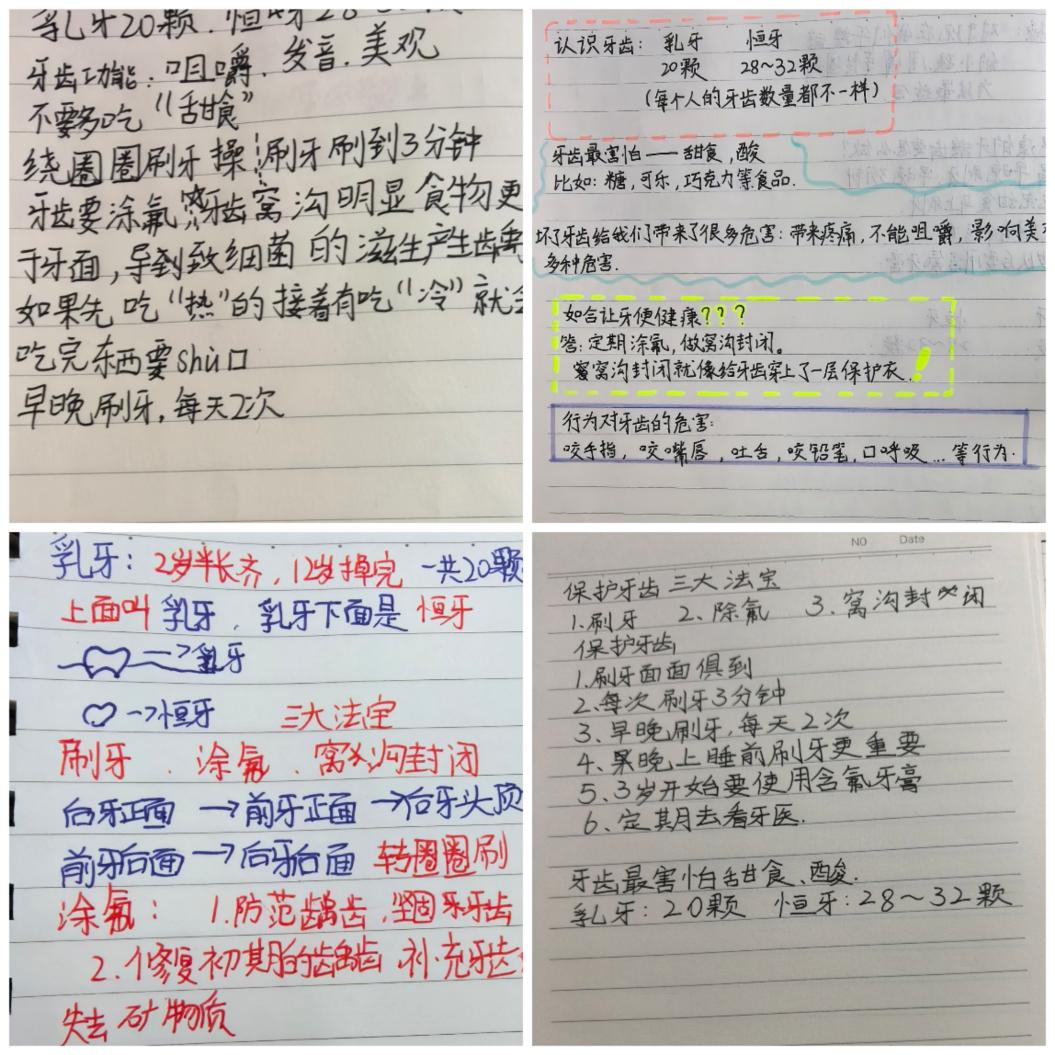 乳牙20颗.恒牙28
牙齿功能.咀嚼.发音.美观
不要多吃“甜食”
绕圈圈刷牙操:刷牙刷到3分钟
牙齿要涂氟 牙齿窝沟明显食物更
于牙面,导到致细菌的滋生产生龋
如果先吃“热”的接着有吃“冷”就会
吃完东西要shù口
早晚刷牙,每天2次
认识牙齿: 乳牙 恒牙
20颗 28~32颗
(每个人的牙齿数量都不一样)
牙齿最害怕——甜食,酸
比如:糖,可乐,巧克力等食品.
坏了牙齿给我们带来了很多危害:带来疼痛,不能咀嚼,影响美
多种危害.
如合让牙便健康???
答:定期涂氟,做窝沟封闭。
窝沟封闭就像给牙齿穿上了一层保护衣!
行为对牙齿的危害:
咬手指,咬嘴唇,吐舌,咬铅笔,口呼吸...等行为.
乳牙: 2岁半长齐,12岁掉完 一共20颗
上面叫乳牙.乳牙下面是恒牙
→乳牙
→恒牙 三大法宝
刷牙、涂氟、窝沟封闭
后牙正面→前牙正面→后牙头顶
前牙后面→后牙后面 转圈圈刷
涂氟: 1.防范龋齿,坚固牙齿
2.修复初期的龋齿,补充牙齿
失去矿物质
NO Date
保护牙齿三大法宝
1.刷牙 2、除氟 3.窝沟封闭
保护牙齿
1.刷牙面面俱到
2.每次刷牙3分钟
3、早晚刷牙,每天2次
4、果晚上睡前刷牙更重要
5、3岁开始要使用含氟牙膏
6、定期去看牙医.
牙齿最害怕甜食、酸.
乳牙:20颗 恒牙:28~32颗